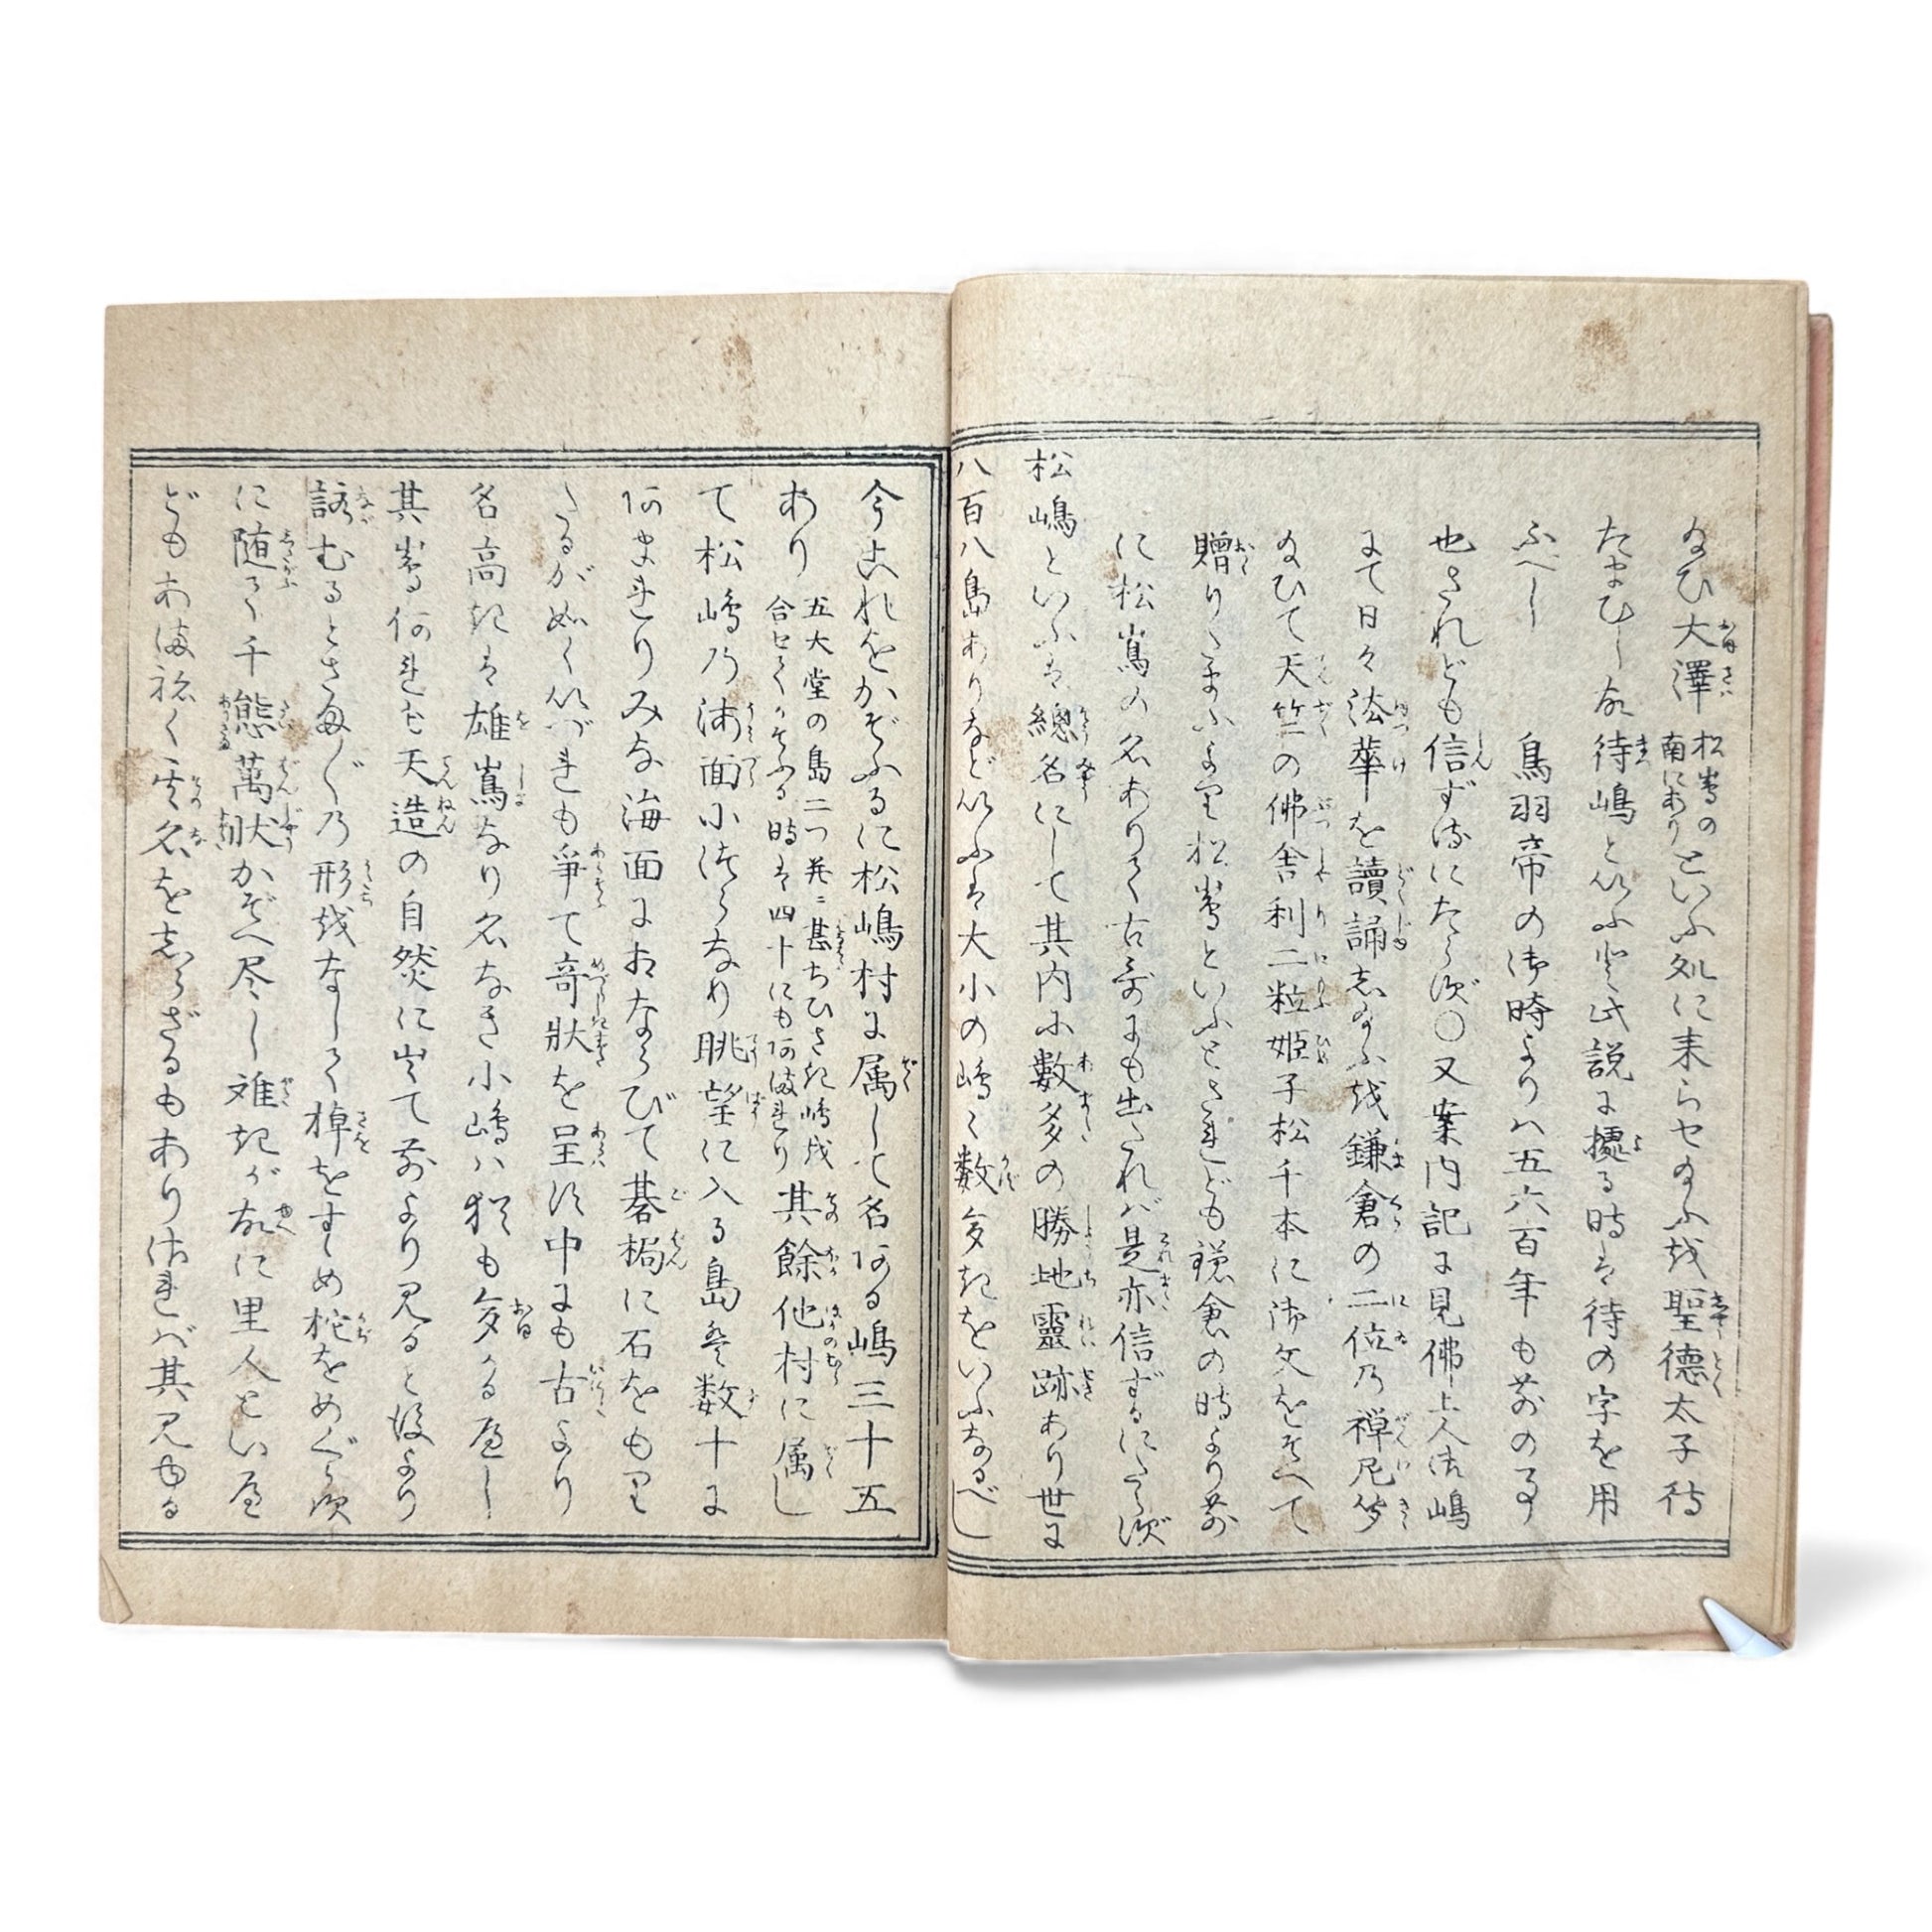 給ひ大澤松嶌の南にありといふ処に来らセ給ふ越聖徳太子待
たまひし故待嶋といふ と此説に據る時は待の字を用
ふべし 鳥羽帝の御時よりハ五六百年も前の事
也されども信ずるにたらず〇又案内記に見佛上人御嶋
にて日々法華を讀誦し給ふ越鎌倉の二位乃禅尼 き
給ひて天竺の佛舎利二粒姫子松千本に御文をそへて
贈りたまふより松嶌といふとされども鎌倉の時より前
に松嶌の名ありて古哥にも出たれバ是亦信ずるにたらず
松嶋といふは總名にして其内に數多の勝地靈跡あり世に
八百八島ありなどいふは大小の嶋々数多きをいふなるべし
今これをかぞふるに松嶋村に属して名ある嶋三十五
あり五大堂の島二つ并ニ甚ちひさき嶋越合セてかぞふる時は四十にもあまれり其餘他村に属し
て松嶋乃海面につらなり眺望に入る島 数十に
あまれりみな海面におならびて碁楊に石をもり
たるが如くいづれも爭て奇状を呈す中にも古より
名高きは雄嶌なり名なき小嶋ハ猶も多かる べし
其嶌何れも天造の自然に出て前より見ると後より
詠むるとさま〴〵乃形越なして棹をすゝめ柁をめぐらす
に随て千態萬状かぞへ尽し難きが故に里人といへ
どもあまねく其名をしらざるもありけれバ其見ゆる